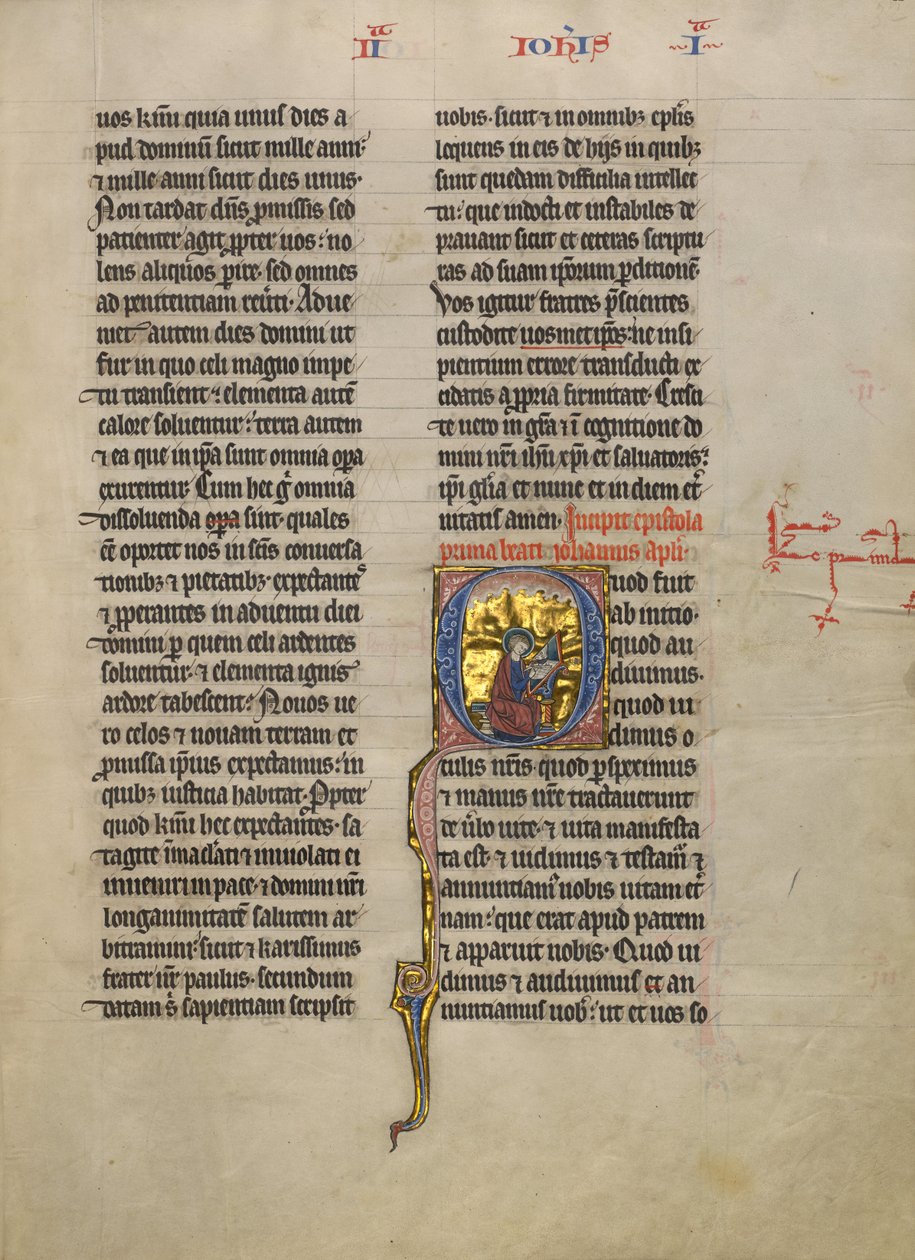 II Ioħis I
uos km̄i quia unus dies a
pud dominū sicut mille anni
⁊ mille anni sicut dies unus·
Non tardat dn̄s ꝓmissis sed
patienter agit ꝓpter uos: no
lens aliq̄uos ꝑire· sed omnes
ad penitentiam reũti· Adue
niet autem dies domini ut
fur in quo celi magno impe
tu transient: elementa autē
calore soluentur: terra autem
⁊ ea que in ip̄a sunt omnia oꝑa
exurentur· Cum hec gͥ omnia
dissoluenda oꝑa sint· quales
eē oportet nos in sc̄is conuersa
tionibꝫ ⁊ pietatibꝫ· expectantes
⁊ ꝓperantes in aduentu diei
domini ꝑ quem celi ardentes
soluentur· ⁊ elementa ignis
ardore tabescent: Nouos ue
ro celos ⁊ nouam terram et
ꝓmissa ip̄ius expectamus: in
quibꝫ iusticia habitat· Ꝓpter
quod km̄i hec expectantes· sa
tagite īmaclati ⁊ inuiolati ei
inueniri in pace· ⁊ domini nr̄i
longanimitatē salutem ar
bitramini: sicut ⁊ karissimus
frater nr̄ paulus· secundum
datam sͥ sapientiam scripsit
uobis· sicut ⁊ in omnibꝫ ep̄lis
loquens in eis de hijs in quibꝫ
sunt quedam difficilia intellec
tu: que indocti et instabiles de
prauant sicut et ceteras scriptu
ras ad suam ip̄orum ꝑditionē·
Vos igitur fratres p̄scientes
custodite uosmet ip̄os: ne insi
pientium errore transducti ex
cidatis a ꝓpria firmitate· Cresci
te uero in gr̄a ⁊ ī cognitione do
mini nr̄i ih̄u xp̄i et saluatoris:
ip̄i gl̄ia et nunc et in diem et̄
nitatis amen· Incipit epistola
prima beati iohannis apl̄i·
Quod fuit
ab initio·
quod au
diuimus·
quod ui
dimus o
culis nr̄is· quod ꝑspeximus
⁊ manus nr̄e tractauerunt
de ũbo uite· ⁊ uita manifesta
ta est· ⁊ uidimus ⁊ testamͬ ⁊
annuntiamͬ uobis uitam et̄
nam: que erat apud patrem
⁊ apparuit nobis· Quod ui
dimus ⁊ audiuimus et an
nuntiamus uob̄: ut et uos so